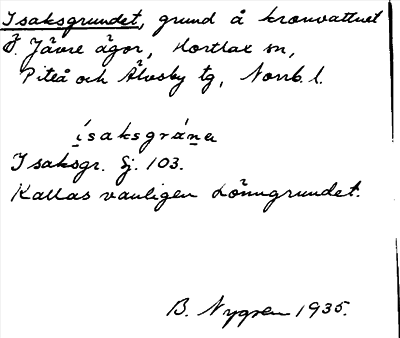 Isaksgrundet, grund å kronvattnet
f. Jävre ägor, Hortlax sn,
Piteå och Älvsby tg, Norrb. l.
ísaksgránẹ
Isaksgr. Sj. 103.
Kallas vanligen Lönngrundet.
B. Nygren 1935.